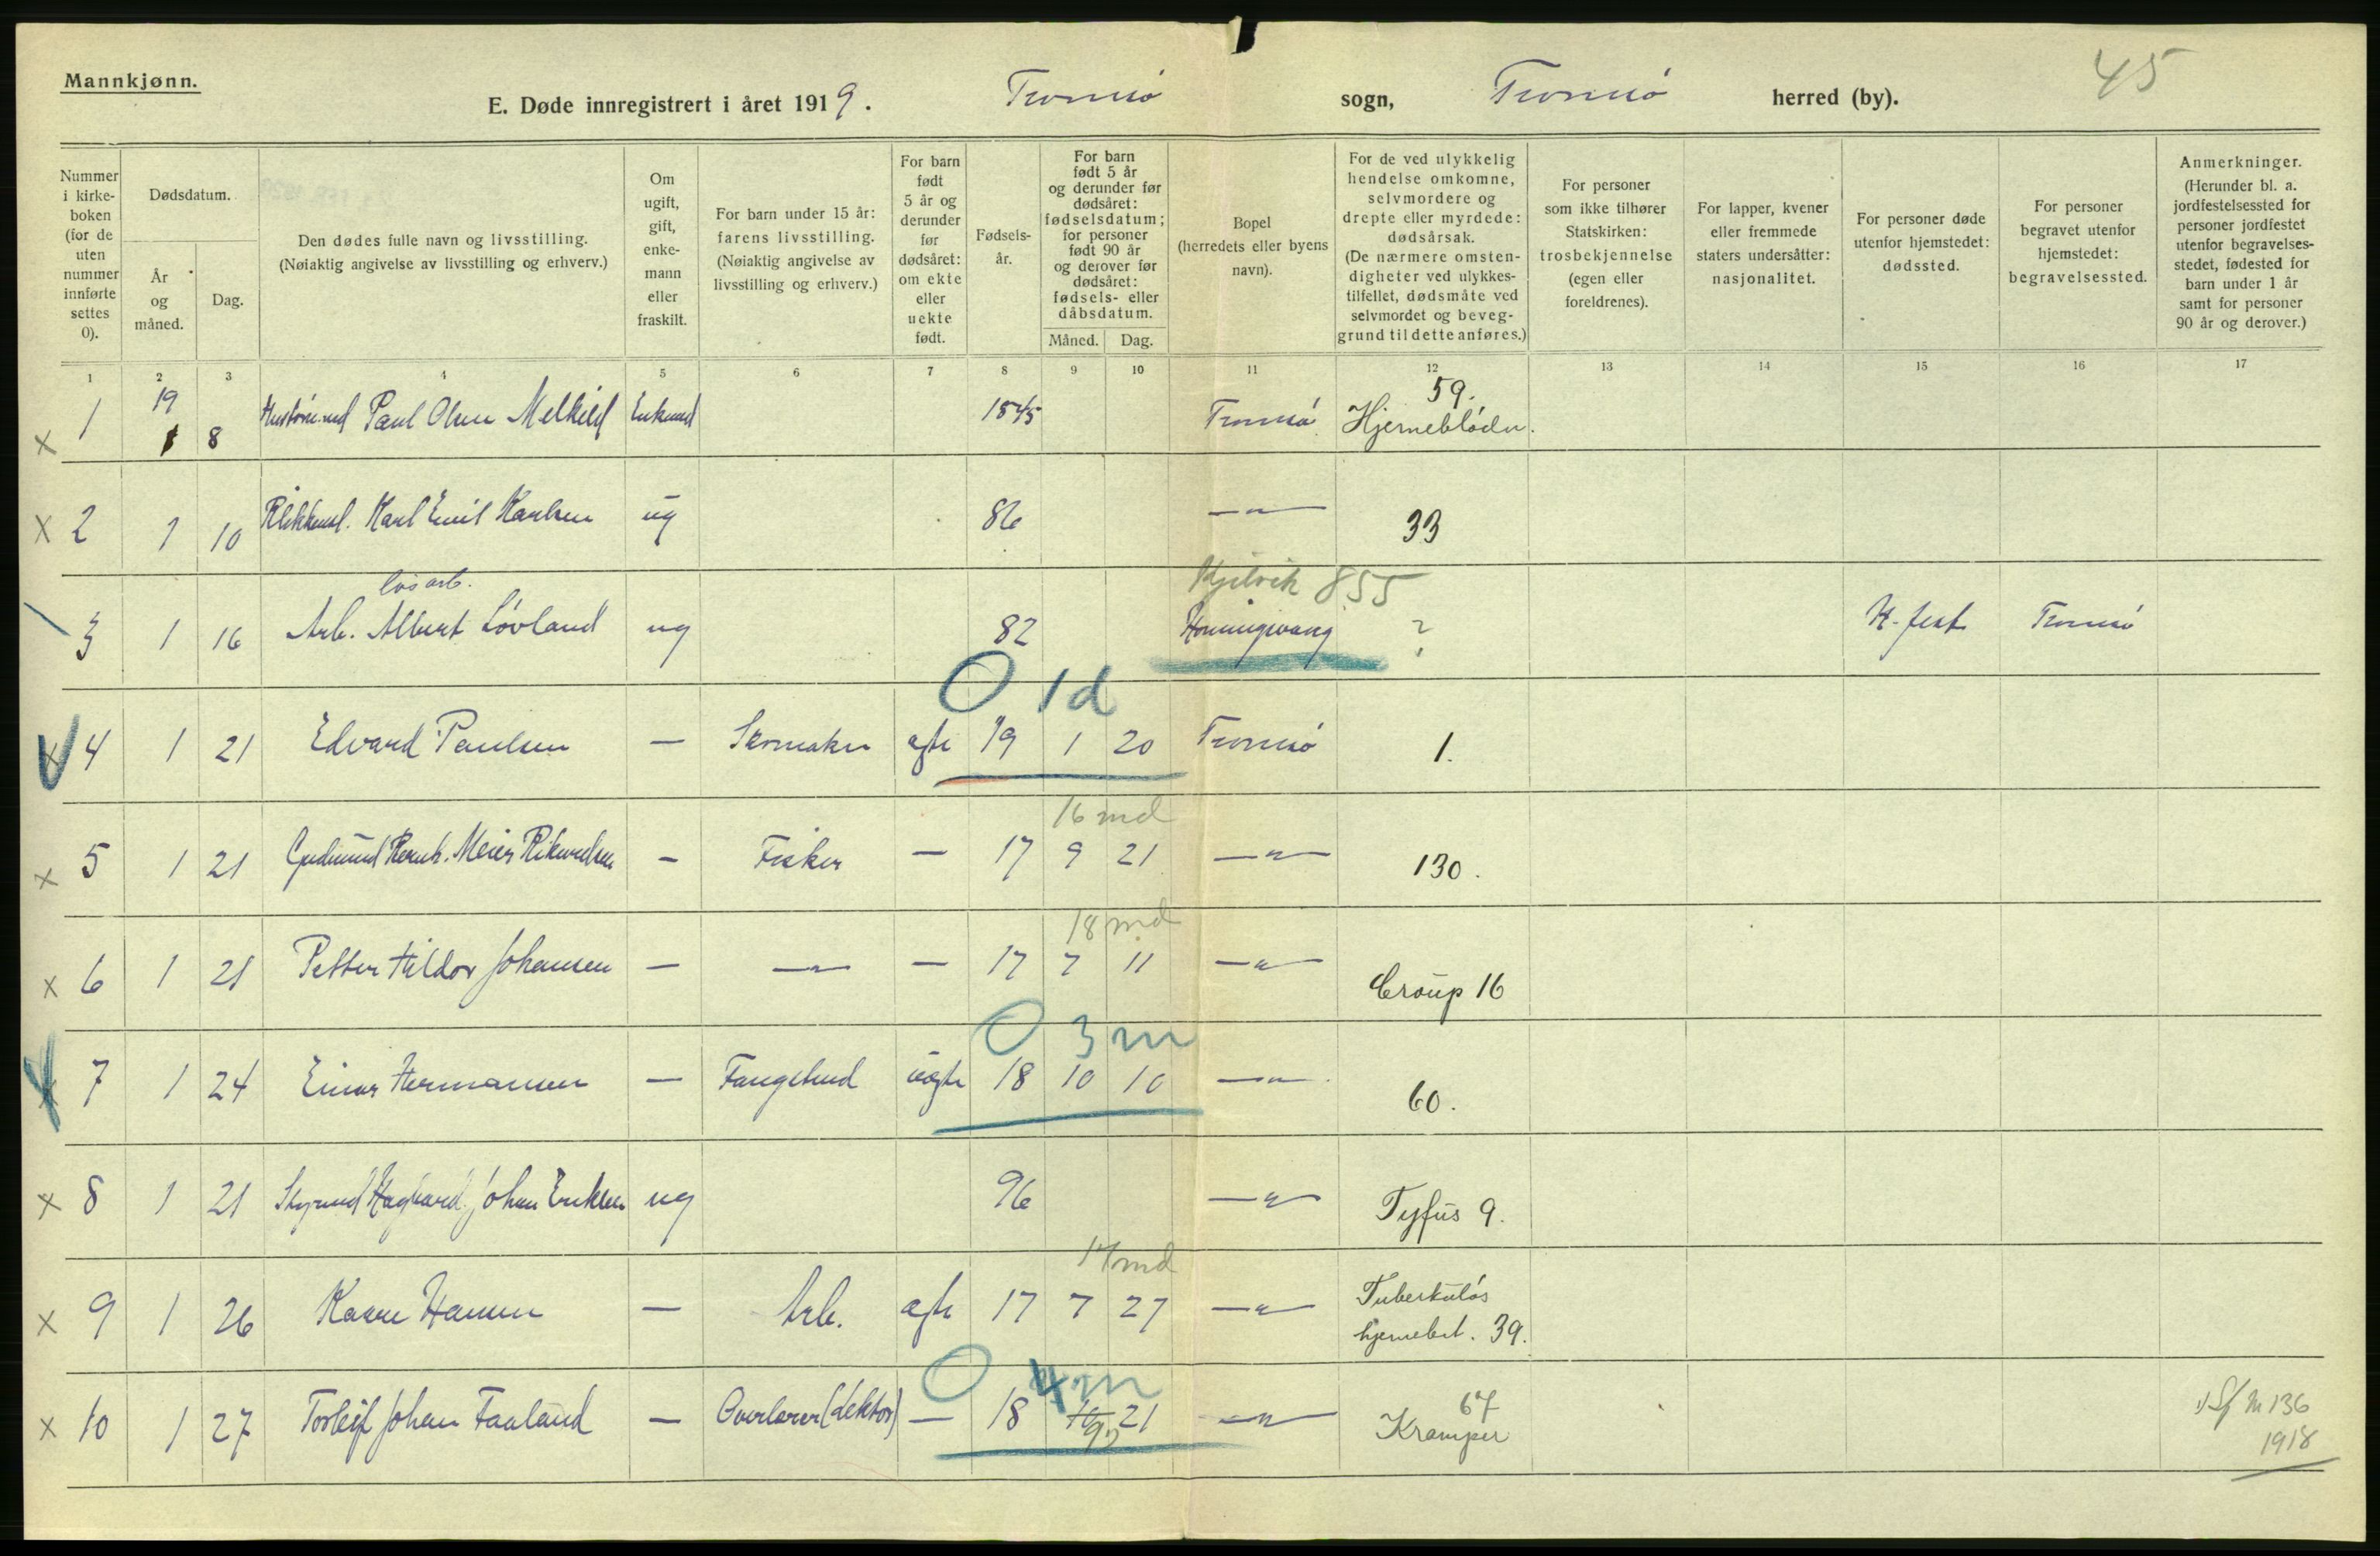 Mannkjønn.
E. Døde innregistrert i året 1919. Tromsø sogn, Tromsø herred (by).
45
Nummer i kirke-boken (for de uten nummer innførte settes 0).
Dødsdatum.
År og måned.
Dag.
Den dødes fulle navn og livsstilling.
(Nøiaktig angivelse av livsstilling og erhverv.)
Om ugift, gift, enke-mann eller fraskilt.
For barn under 15 år: farens livsstilling.
(Nøiaktig angivelse av livsstilling og erhverv.)
For barn født 5 år og derunder før dødsåret: om ekte eller uekte født.
Fødsels-år.
For barn født 5 år og derunder før dødsåret: fødselsdatum; for personer født 90 år og derover før dødsåret: fødsels- eller dåbsdatum.
Måned. Dag.
Bopel (herredets eller byens navn).
For de ved ulykkelig hendelse omkomne, selvmordere og drepte eller myrdede: dødsårsak.
(De nærmere omsten-digheter ved ulykkes-tilfellet, dødsmåte ved selvmordet og beveg-grund til dette anføres.)
For personer som ikke tilhører Statskirken: trosbekjennelse (egen eller foreldrenes).
For lapper, kvener eller fremmede staters undersåtter: nasjonalitet.
For personer døde utenfor hjemstedet: dødssted.
For personer begravet utenfor hjemstedet: begravelsessted.
Anmerkninger.
(Herunder bl. a. jordfestelsessted for personer jordfestet utenfor begravelses-stedet, fødested for barn under 1 år samt for personer 90 år og derover.)
1 2 3 4 5 6 7 8 9 10 11 12 13 14 15 16 17
59.
x 1 19 1 8 Paul Olsen 1845 Tromsø Hjerneblødn.
x 2 1 10 Karl Emil Karlsen ug 86 —„— 33
løsarb. Kjelvik 855
3 1 16 Arb. Albert Løvland ug 82 Honningsvaag ? H-fest Tromsø
0 1d
x 4 1 21 Edvard Paulsen — Skomaker ægte 19 1 20 Tromsø 1.
16 md
x 5 1 21 Gudmund Bernh. Meier Rikardsen — Fisker — 17 9 21 —„— 130.
18 md
x 6 1 21 Petter Hildor Johansen — —„— — 17 7 11 —„— Croup 16
0 3m
x 7 1 24 Einar Hermansen — uægte 18 10 10 —„— 60.
x 8 1 21 Hagbard Johan Eriksen ug 96 —„— Tyfus 9.
md
x 9 1 26 Kaare Hansen — Arb. ægte 17 7 27 —„— Tuberkuløs
hjernebet. 39.
0 4m
x 10 1 27 Torleif Johan Faaland — Overlærer (lektor) — 18 10 21 —„— 67
9 Kramper
136
1918